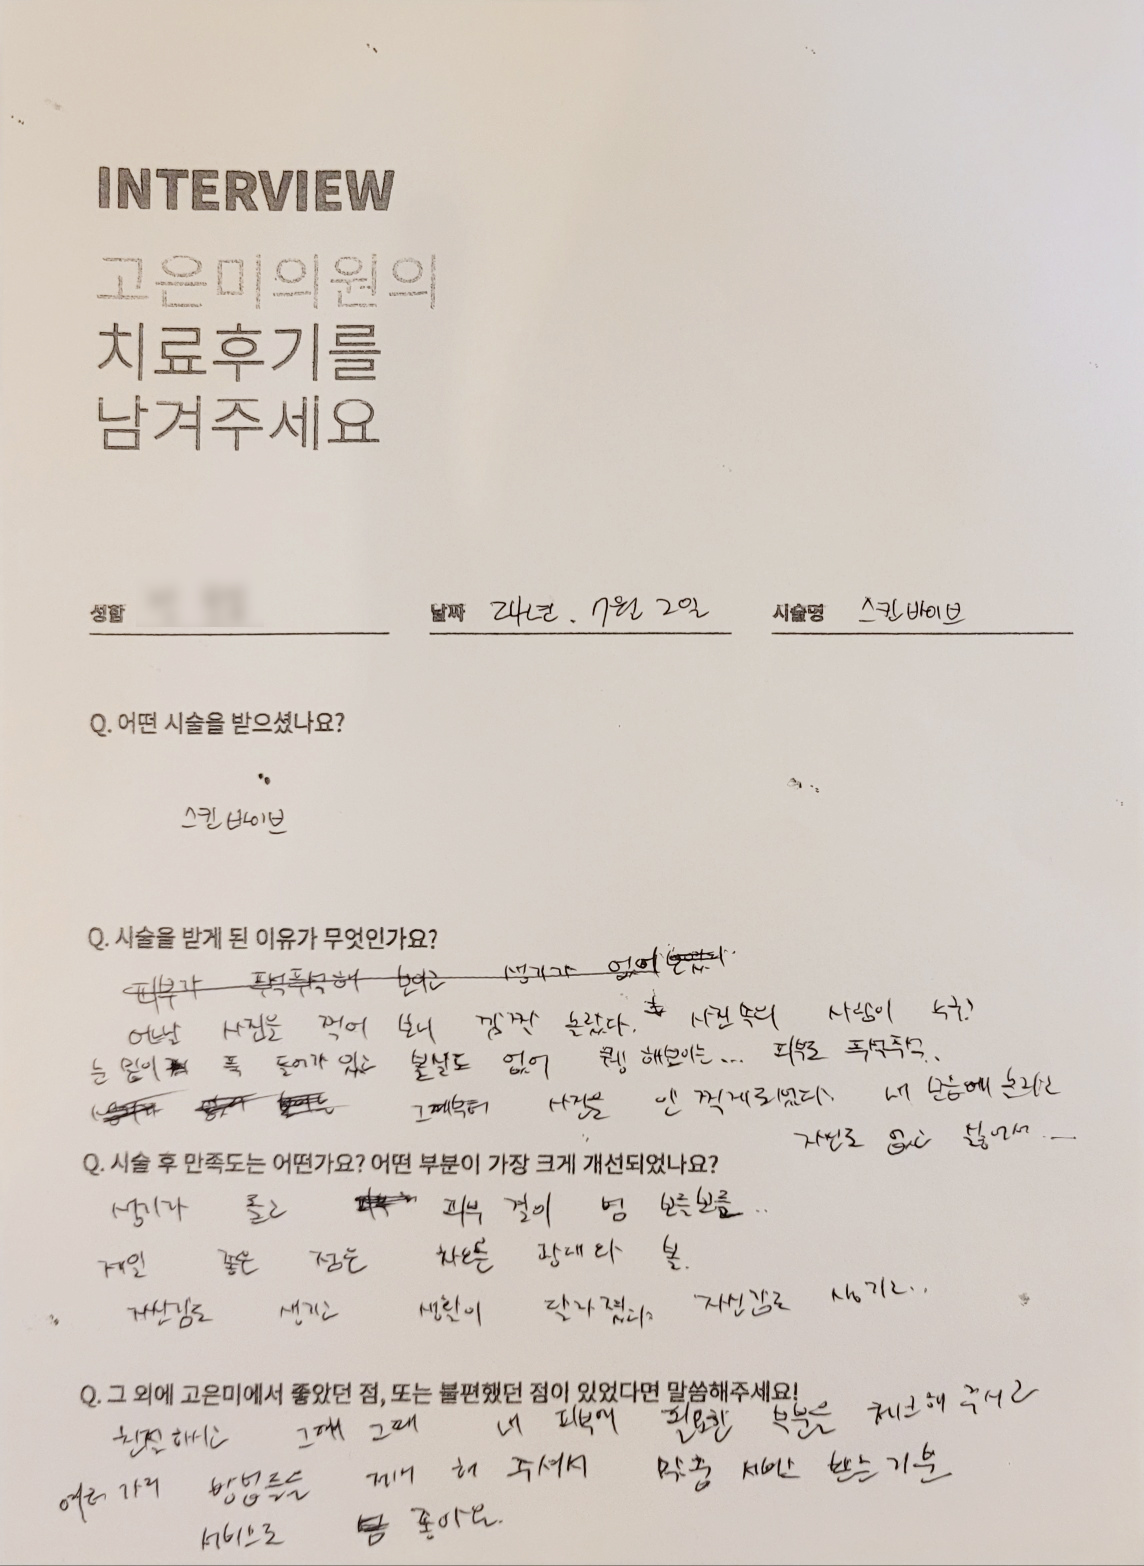 INTERVIEW
고은미의원의
치료후기를
남겨주세요
성함
날짜 24년. 7월 2일
시술명 스킨바이브
Q. 어떤 시술을 받으셨나요?
스킨바이브
Q. 시술을 받게 된 이유가 무엇인가요?
피부가 푹석푹석해 보이고 생기가 없어
어느날 사진을 찍어 보니 깜짝 놀랐다. 사진속의 사람이 누구?
눈 밑이 푹 들어가 있고 볼살도 없어 퀭해보이는... 피부도 푹석푹석..
그때부터 사진을 안 찍게되었다. 내 모습에
자신도 없고 싫어서...
Q. 시술 후 만족도는 어떤가요? 어떤 부분이 가장 크게 개선되었나요?
생기가 돌고 피부 결이 넘 보들보들..
제일 좋은 점은 차오른 광대와 볼.
자신감도 생기고 생활이 달라졌다. 자신감도 생기고..
Q. 그 외에 고은미에서 좋았던 점, 또는 불편했던 점이 있었다면 말씀해주세요!
친절하시고 그때 그때 내 피부에 필요한 부분을 체크해 주시고
여러 가지 방법들을 제시 해 주셔서 맞춤 서비스 받는 기분
서비스도 넘 좋아요.